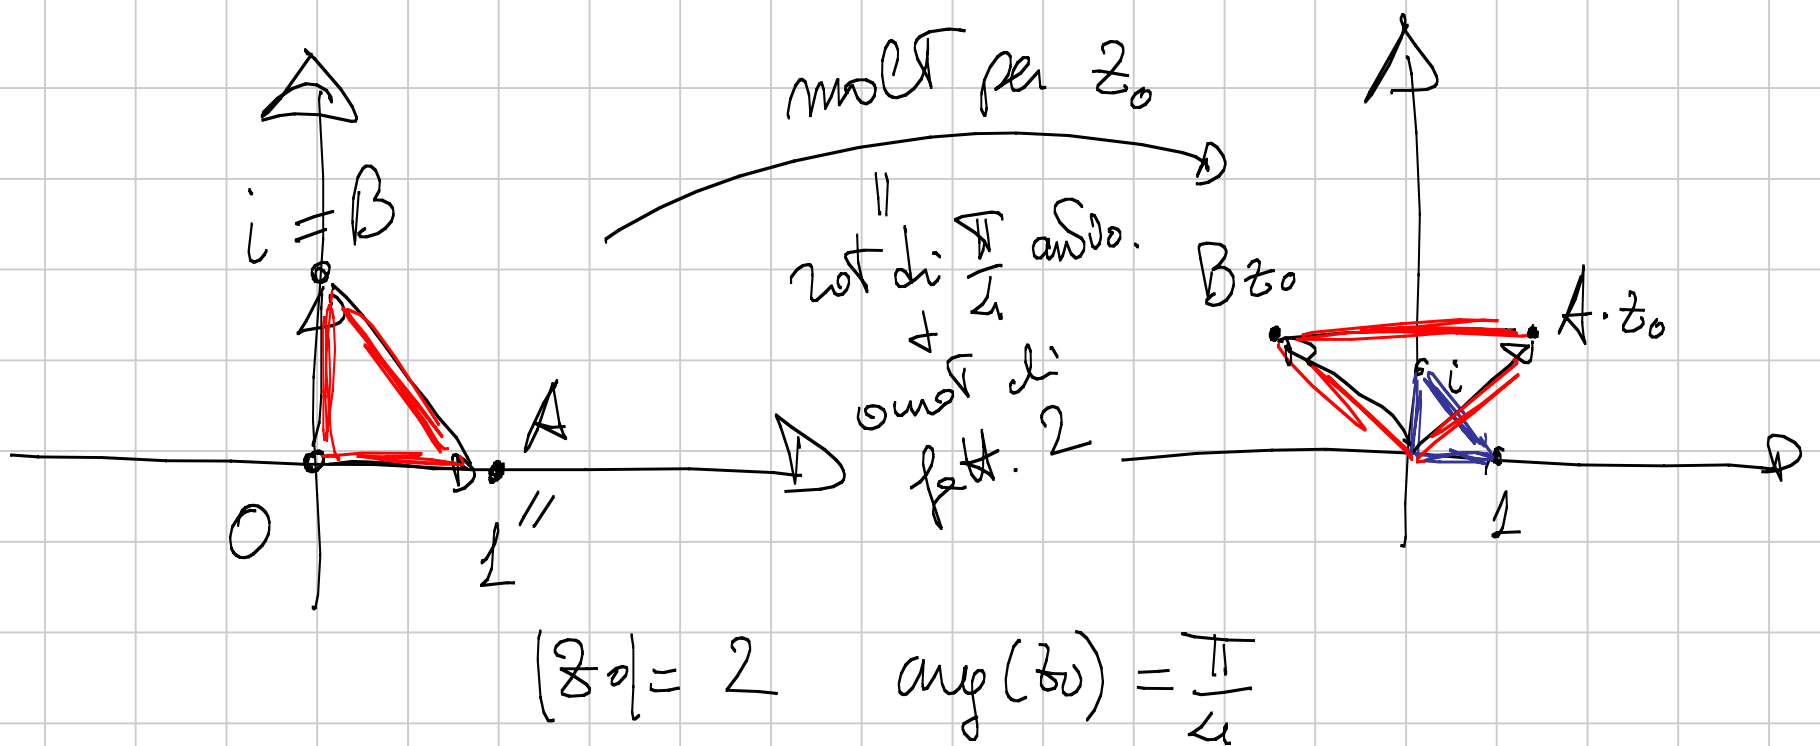 molt per z₀
=
rot di π/4 antio.
+
omot di
fatt. 2
i = B
A
=
0
1
Bz₀
A·z₀
i
1
|z₀| = 2 arg(z₀) = π/4